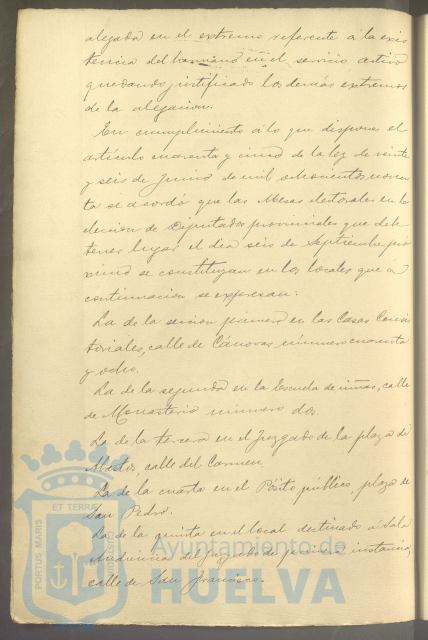 alegada en el extremo referente á la exis
tencia del hermano en el servicio activo
quedando justificado los demás extremos
de la alegacion.
En cumplimiento á lo que dispone el
artículo cuarenta y cinco de la ley de veinte
y seis de Junio de mil ochocientos noven
ta se acordó que las Mesas electorales en la
eleccion de Diputados provinciales que debe
tener lugar el dia seis de Septiembre pró
ximo se constituyan en los locales que á
continuacion se expresan:
La de la seccion primera en las Casas Consis
toriales, calle de Cánovas número cuarenta
y ocho.
La de la segunda en la Escuela de niñas, calle
de Monasterio número dos.
La de la tercera en el Juzgado de la plaza de
Abastos, calle del Carmen.
La de la cuarta en el Pósito público, plaza de
San Pedro.
La de la quinta en el local destinado á Sala
Audiencia del Juzgado de primera instancia,
calle de San Francisco.
PORTUS MARIS
ET TERRÆ
Ayuntamiento de
HUELVA